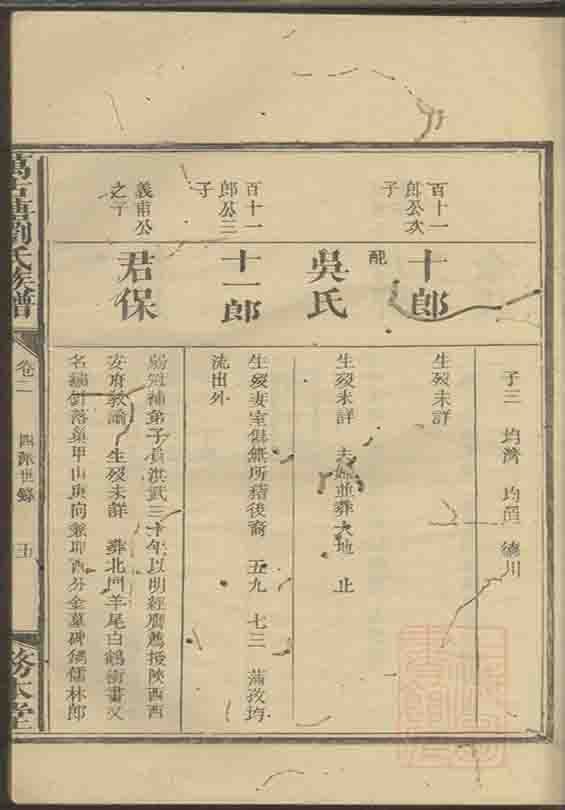 子三 均濟 均 德川
百十一
郎公次
子
十郎
生歿未詳
配
吳氏
生歿未詳 夫婦並葬大地 止
百十一
郎公三
子
十一郎
生歿妻室俱無所稽後裔 五九 七三 蒲汝均
流出外
義甫公
之子
君保
弱冠補弟子員洪武三十年以明經膺薦授陝西西
安府教諭 生歿未詳 葬北門羊尾白鶴街書又
名 落巢甲山庚向兼卯酉分金墓碑鐫儒林郎
萬古塘劉氏族譜
卷二 四派世錄 五
務本堂